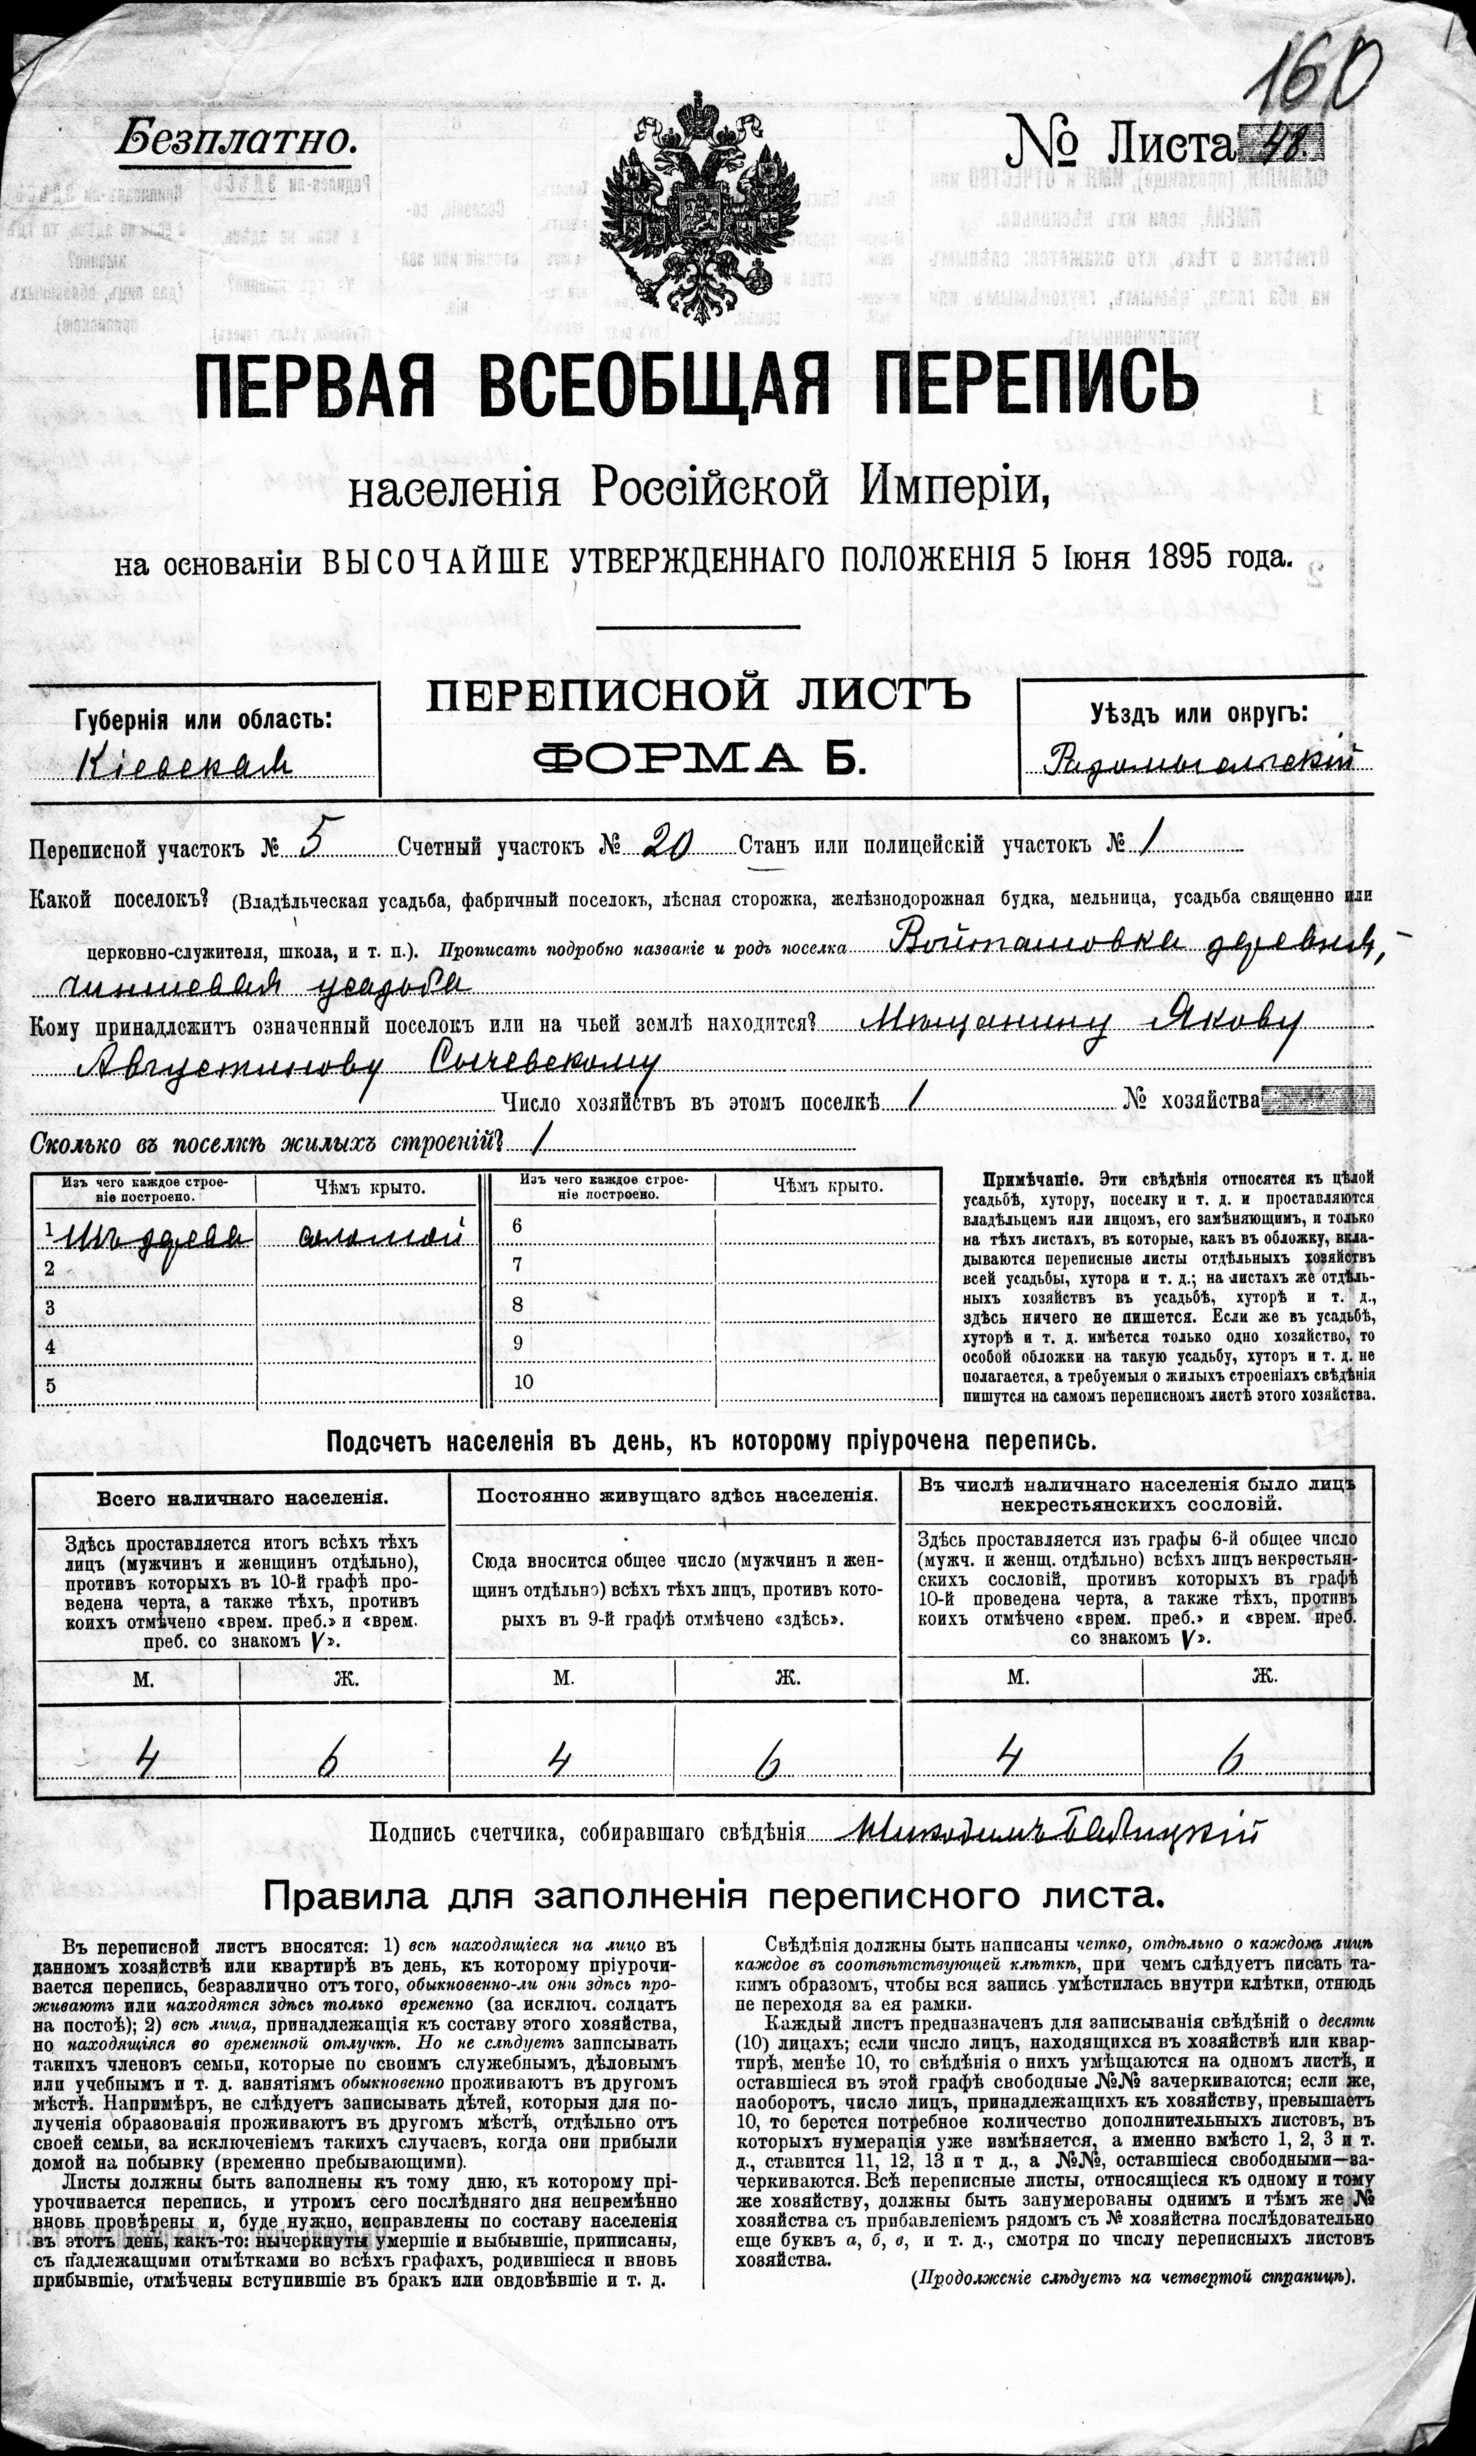 160
Безплатно.
№ Листа 48.
ПЕРВАЯ ВСЕОБЩАЯ ПЕРЕПИСЬ
населенія Россійской Имперіи,
на основаніи ВЫСОЧАЙШЕ УТВЕРЖДЕННАГО ПОЛОЖЕНІЯ 5 Іюня 1895 года.
Губернія или область:
Кіевская
ПЕРЕПИСНОЙ ЛИСТЪ
ФОРМА Б.
Уѣздъ или округъ:
Радомысльскій
Переписной участокъ № 5 Счетный участокъ № 20 Станъ или полицейскій участокъ № 1
Какой поселокъ? (Владѣльческая усадьба, фабричный поселокъ, лѣсная сторожка, желѣзнодорожная будка, мельница, усадьба священно или
церковно-служителя, школа, и т. п.). Прописать подробно названіе и родъ поселка Войташовка деревня,
чиншевая усадьба
Кому принадлежитъ означенный поселокъ или на чьей землѣ находится? Мещанину Якову
Августинову Сычевскому
Число хозяйствъ въ этомъ поселкѣ 1 № хозяйства
Сколько въ поселкѣ жилыхъ строеній? 1
Изъ чего каждое строе-
ніе построено.
Чѣмъ крыто.
Изъ чего каждое строе-
ніе построено.
Чѣмъ крыто.
1 Изъ древа соломой 6
2 7
3 8
4 9
5 10
Примѣчаніе. Эти свѣдѣнія относятся къ цѣлой
усадьбѣ, хутору, поселку и т. д. и проставляются
владѣльцемъ или лицомъ, его замѣняющимъ, и только
на тѣхъ листахъ, въ которые, какъ въ обложку, вкла-
дываются переписные листы отдѣльныхъ хозяйствъ
всей усадьбы, хутора и т. д.; на листахъ же отдѣль-
ныхъ хозяйствъ въ усадьбѣ, хуторѣ и т. д.,
здѣсь ничего не пишется. Если же въ усадьбѣ,
хуторѣ и т. д. имѣется только одно хозяйство, то
особой обложки на такую усадьбу, хуторъ и т. д. не
полагается, а требуемыя о жилыхъ строеніяхъ свѣдѣнія
пишутся на самомъ переписномъ листѣ этого хозяйства.
Подсчетъ населенія въ день, къ которому пріурочена перепись.
Всего наличнаго населенія.
Здѣсь проставляется итогъ всѣхъ тѣхъ
лицъ (мужчинъ и женщинъ отдѣльно),
противъ которыхъ въ 10-й графѣ про-
ведена черта, а также тѣхъ, противъ
коихъ отмѣчено «врем. преб.» и «врем.
преб. со знакомъ V».
Постоянно живущаго здѣсь населенія.
Сюда вносится общее число (мужчинъ и жен-
щинъ отдѣльно) всѣхъ тѣхъ лицъ, противъ кото-
рыхъ въ 9-й графѣ отмѣчено «здѣсь».
Въ числѣ наличнаго населенія было лицъ
некрестьянскихъ сословій.
Здѣсь проставляется изъ графы 6-й общее число
(мужч. и женщ. отдѣльно) всѣхъ лицъ некрестьян-
скихъ сословій, противъ которыхъ въ графѣ
10-й проведена черта, а также тѣхъ, противъ
коихъ отмѣчено «врем. преб.» и «врем. преб.
со знакомъ V».
М. Ж. М. Ж. М. Ж.
4 6 4 6 4 6
Подпись счетчика, собиравшаго свѣдѣнія Никодимъ
Правила для заполненія переписного листа.
Въ переписной листъ вносятся: 1) всѣ находящіеся на лицо въ
данномъ хозяйствѣ или квартирѣ въ день, къ которому пріурочи-
вается перепись, безразлично отъ того, обыкновенно-ли они здѣсь про-
живаютъ или находятся здѣсь только временно (за исключ. солдатъ
на постоѣ); 2) всѣ лица, принадлежащія къ составу этого хозяйства,
но находящіяся во временной отлучкѣ. Но не слѣдуетъ записывать
такихъ членовъ семьи, которые по своимъ служебнымъ, дѣловымъ
или учебнымъ и т. д. занятіямъ обыкновенно проживаютъ въ другомъ
мѣстѣ. Напримѣръ, не слѣдуетъ записывать дѣтей, которыя для по-
лученія образованія проживаютъ въ другомъ мѣстѣ, отдѣльно отъ
своей семьи, за исключеніемъ такихъ случаевъ, когда они прибыли
домой на побывку (временно пребывающими).
Листы должны быть заполнены къ тому дню, къ которому прі-
урочивается перепись, и утромъ сего послѣдняго дня непремѣнно
вновь провѣрены и, буде нужно, исправлены по составу населенія
въ этотъ день, какъ-то: вычеркнуты умершіе и выбывшіе, приписаны,
съ надлежащими отмѣтками во всѣхъ графахъ, родившіеся и вновь
прибывшіе, отмѣчены вступившіе въ бракъ или овдовѣвшіе и т. д.
Свѣдѣнія должны быть написаны четко, отдѣльно о каждомъ лицѣ
каждое въ соотвѣтствующей клѣткѣ, при чемъ слѣдуетъ писать та-
кимъ образомъ, чтобы вся запись умѣстилась внутри клѣтки, отнюдь
не переходя за ея рамки.
Каждый листъ предназначенъ для записыванія свѣдѣній о десяти
(10) лицахъ; если число лицъ, находящихся въ хозяйствѣ или квар-
тирѣ, менѣе 10, то свѣдѣнія о нихъ умѣщаются на одномъ листѣ, и
оставшіеся въ этой графѣ свободные №№ зачеркиваются; если же,
наоборотъ, число лицъ, принадлежащихъ къ хозяйству, превышаетъ
10, то берется потребное количество дополнительныхъ листовъ, въ
которыхъ нумерація уже измѣняется, а именно вмѣсто 1, 2, 3 и т.
д., ставится 11, 12, 13 и т д., а №№, оставшіеся свободными—за-
черкиваются. Всѣ переписные листы, относящіеся къ одному и тому
же хозяйству, должны быть занумерованы однимъ и тѣмъ же №
хозяйства съ прибавленіемъ рядомъ съ № хозяйства послѣдовательно
еще буквъ а, б, в, и т. д., смотря по числу переписныхъ листовъ
хозяйства.
(Продолженіе слѣдуетъ на четвертой страницѣ).